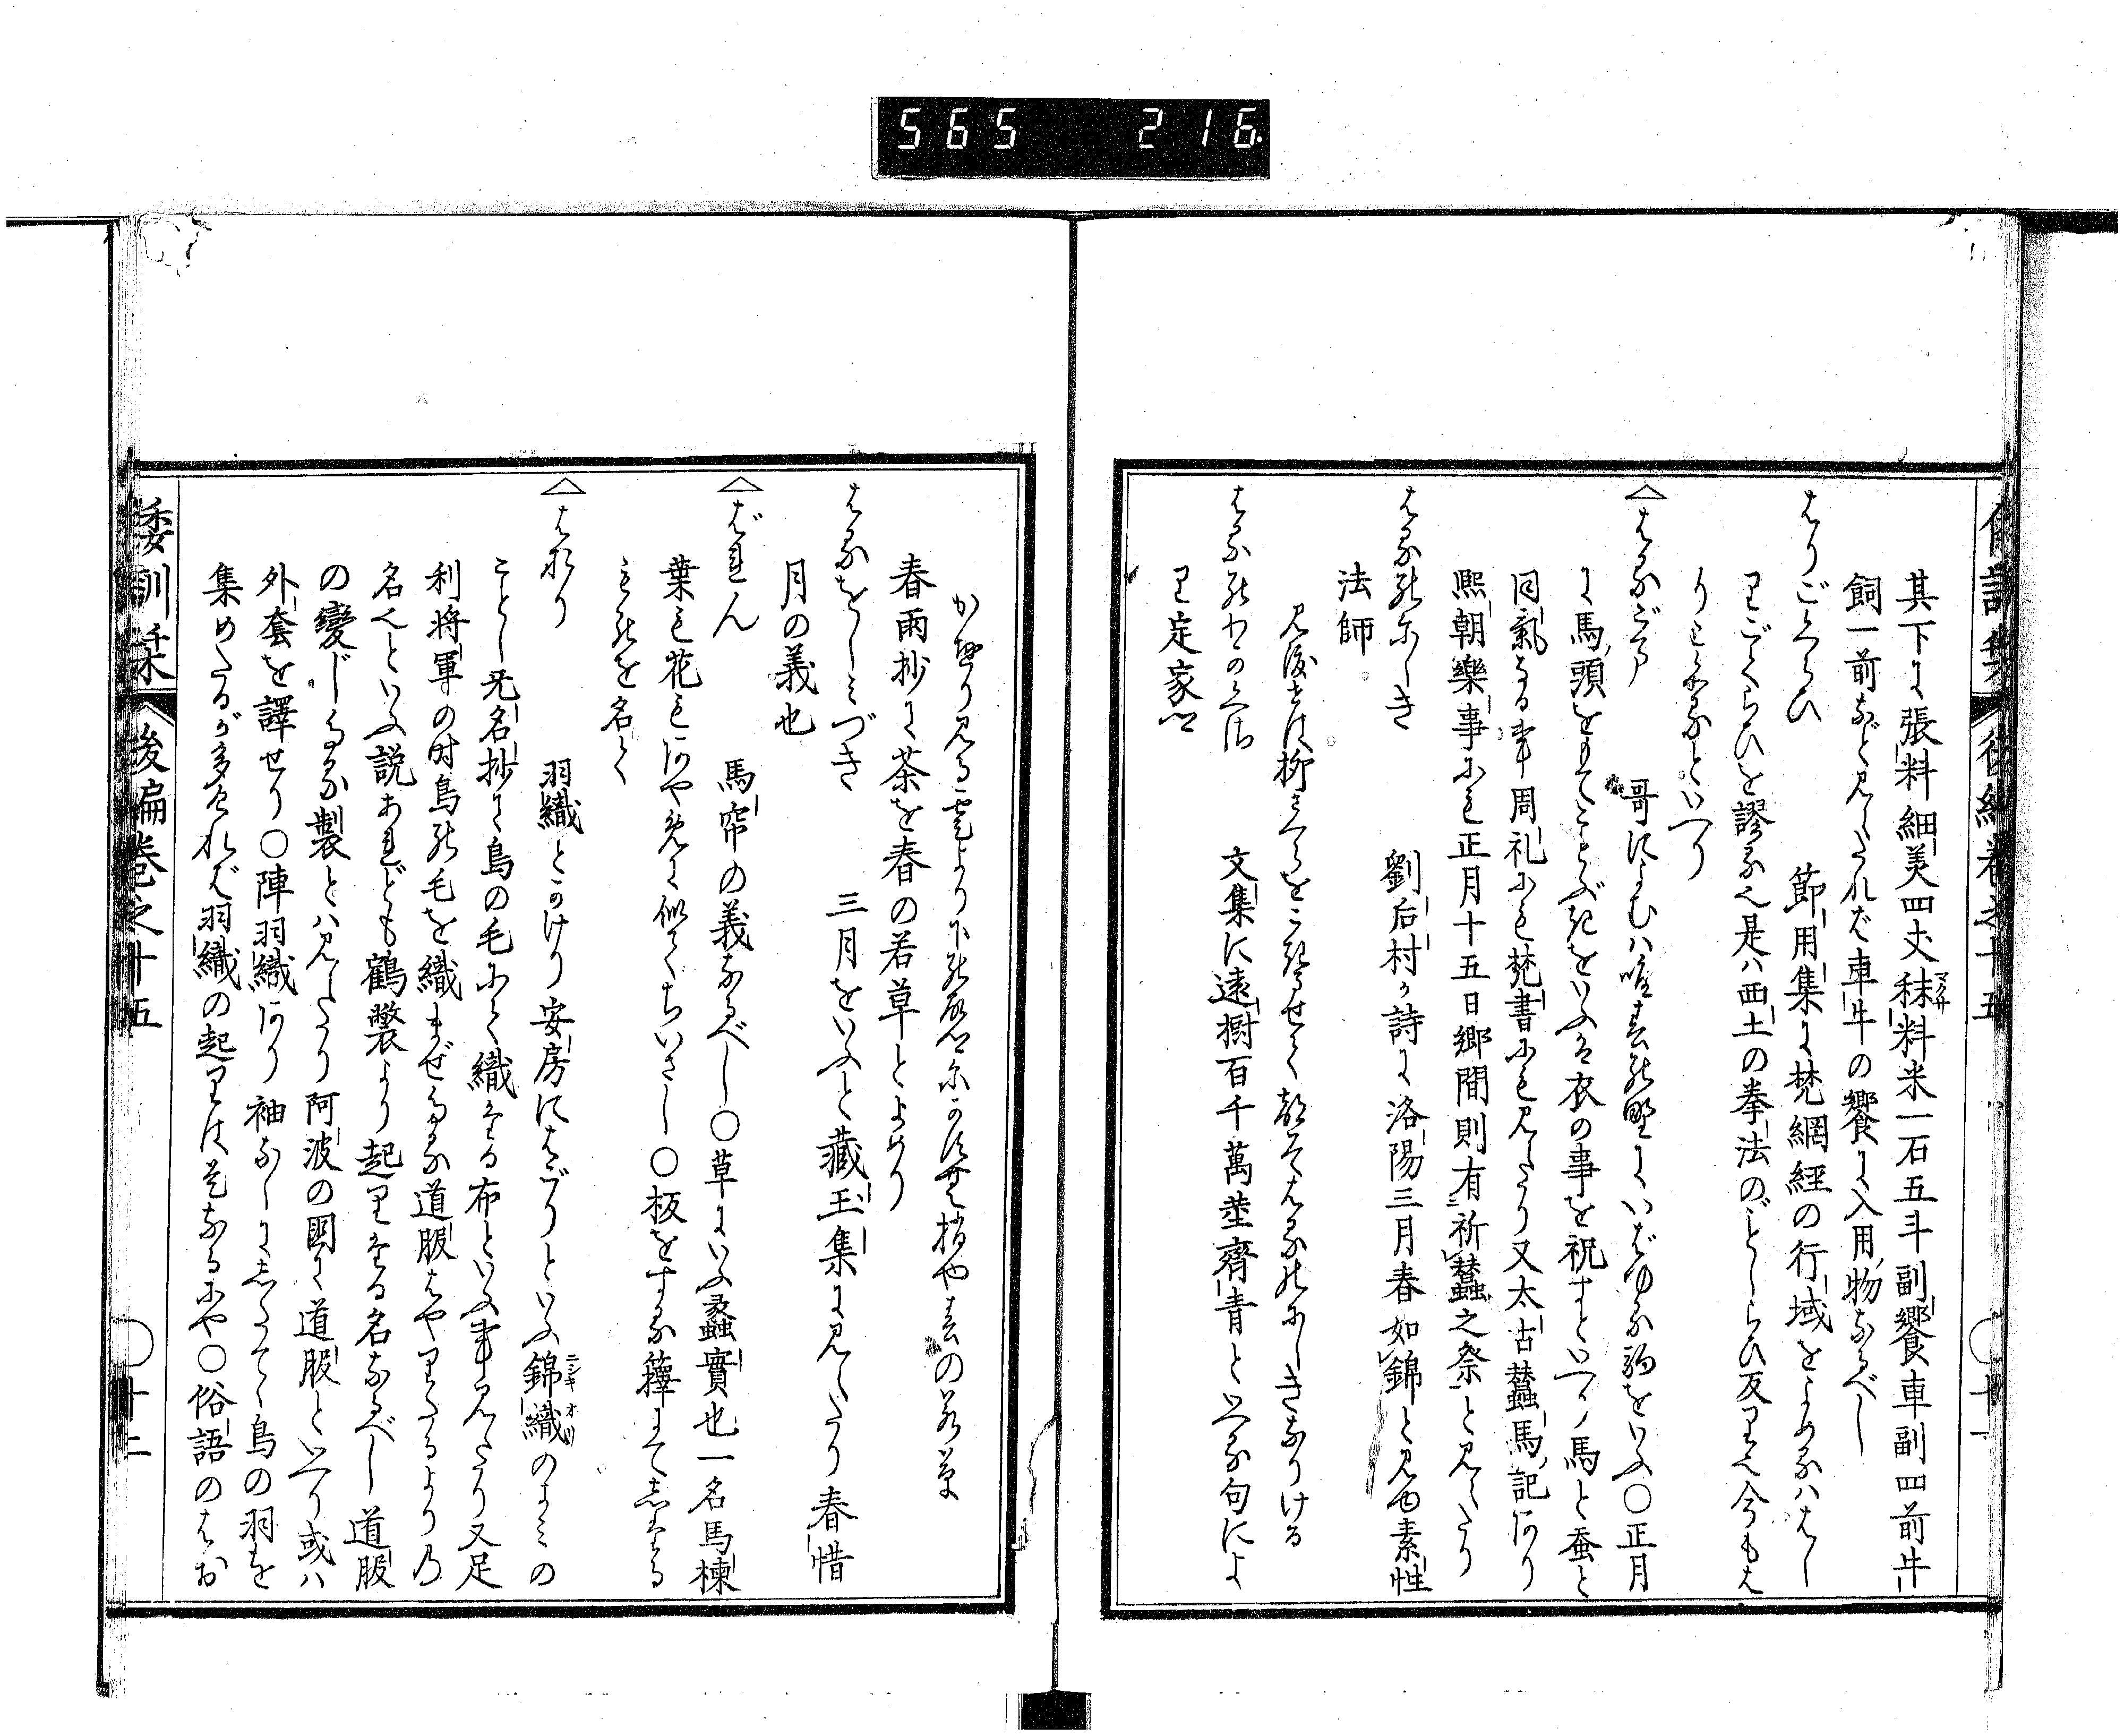 565 216
倭訓栞 後編巻之十五 ○十一
其下に張料細美四丈秣料米一石五斗副饗車副四前牛
飼一前など見えたれば車牛の饗に入用物なるべし
はりごくらひ 節用集に梵網經の行域をよめるハはし
りごくらひを謬る也是ハ西土の拳法のごとしらひ反り也今もは
りこくるといへり
△はるごま 哥によむハ唯春の野にいばゆる駒をいふ○正月
に馬頭をもてことぶきをいふは衣の事を祝すといへり馬と蚕と
同氣なる事周礼にも梵書にも見えたり又太古蠶馬記あり
熙朝樂事にも正月十五日郷間則有祈蠶之祭と見えたり
はるのにしき 劉后村が詩に洛陽三月春如錦と見ゆ素性
法師
見渡せば柳さくらをこきまぜて都ぞはるのにしきなりける
はるのわのくさ 文集に遠樹百千萬莖齊青といへる句によ
り定家卿
かへり見る雲より下の
春雨抄に茶を春の若草とよめり
はるをしみづき 三月をいふと藏玉集に見えたり春惜
月の義也
△ばれん 馬帘の義なるべし○草にいふ蠡實也一名馬楝
葉も花もあやめに似てちいさし○板をする籜にてしたる
ものを名く
△はおり 羽織とかけり安房にはごりといふ錦織のよみの
ことし 名抄に鳥の毛にて織たる布といふ事見えたり又足
利将軍の時鳥の毛を織まぜたる道服はやりたるよりの
名也といふ説あれども鶴氅より起りたる名なるべし道服
の變じたる製とハ見えたり阿波の國に道服といへり或ハ
外套を譯せり○陣羽織あり袖なしにしたてゝ鳥の羽を
集めたるが多ければ羽織の起りは是なるにや○俗語のはお
倭訓栞 後編巻之十五 ○十二